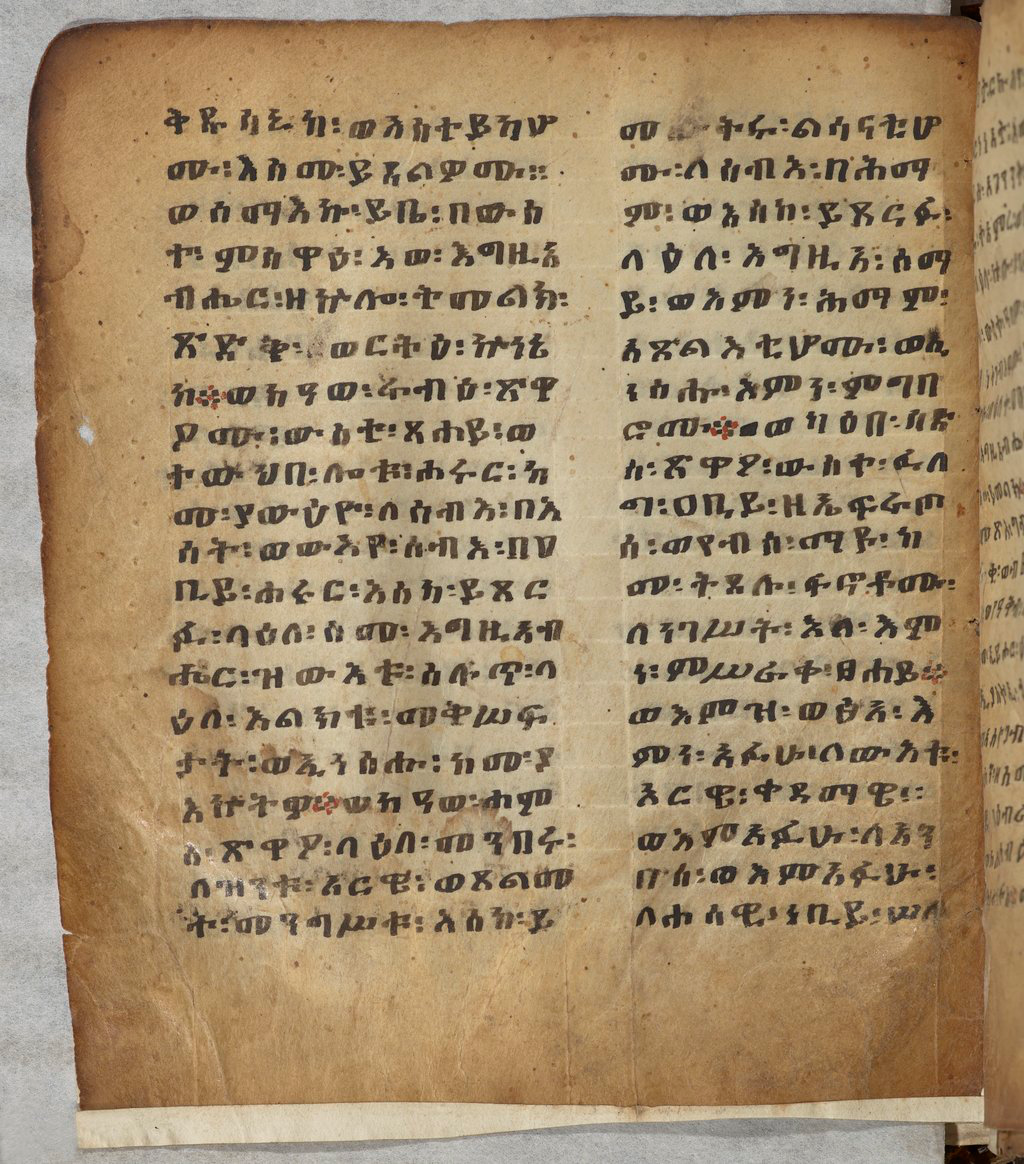 ቅዱሳኒከ፡ወእስተይካሆ
ሙ፡እስመ፡ይደልዎሙ።
ወሰማእኩ፡ይቤ፡በውስ
ተ፡ምስዋዕ፡እወ፡እግዚእ
ብሔር፡ዘኵሎ፡ትመልክ፡
ጽድቅ፡ወርትዕ፡ኵነኔ
ከ፨ወከዓወ፡ራብዕ፡ጽዋ
ዖሙ፡ውስተ፡ጸሐይ፡ወ
ተውህበ፡ሎቱ፡ሐሩር፡ከ
መ፡ያውዕዮ፡ለሰብእ፡በእ
ሳት፡ወውእየ፡ሰብእ፡በዐ
ቢይ፡ሐሩር፡እስከ፡ይጸር
ፉ፡ላዕለ፡ስሙ፡እግዚአብ
ሔር፡ዝውእቱ፡ስሉጥ፡ላ
ዕለ፡እልክቱ፡መቅሠፍ
ታት፡ወኢነስሑ፡ከመ፡ያ
እኵትዎ፨ወከዓወ፡ሐም
ስ፡ጽዋዖ፡ላዕለ፡መንበሩ፡
ለዝንቱ፡አርዌ፡ወጸልመ
ት፡መንግሥቱ፡እስከ፡ይ
ልሳናቲሆ
ሙ፡ለሰብእ፡በሕማ
ም፡ወእስከ፡ይጸርፉ፡
ላዕለ፡እግዚአ፡ሰማ
ይ፡ወእምነ፡ሕማም፡
አጽልእቲሆሙ፡ወኢ
ነስሑ፡እምነ፡ምግባ
ሮሙ፨ወካዕበ፡ሳድ
ስ፡ጽዋዖ፡ውስተ፡ፈለ
ግ፡ዐቢይ፡ዘኤፍራጦ
ስ፡ወየብሰ፡ማዩ፡ከ
መ፡ትጸሉ፡ፍኖቶሙ፡
ለነገሥት፡እለ፡እም
ነ፡ምሥራቀ፡ፀሐይ፨
ወእምዝ፡ወፅአ፡እ
ምነ፡አፉሁ፡ለውእቱ፡
አርዌ፡ቀዳማዊ፡
ወእምአፉሁ፡ለአን
በሳ፡ወእምአፉሁ፡
ለሐሳዊ፡ነቢይ፡ሠለ